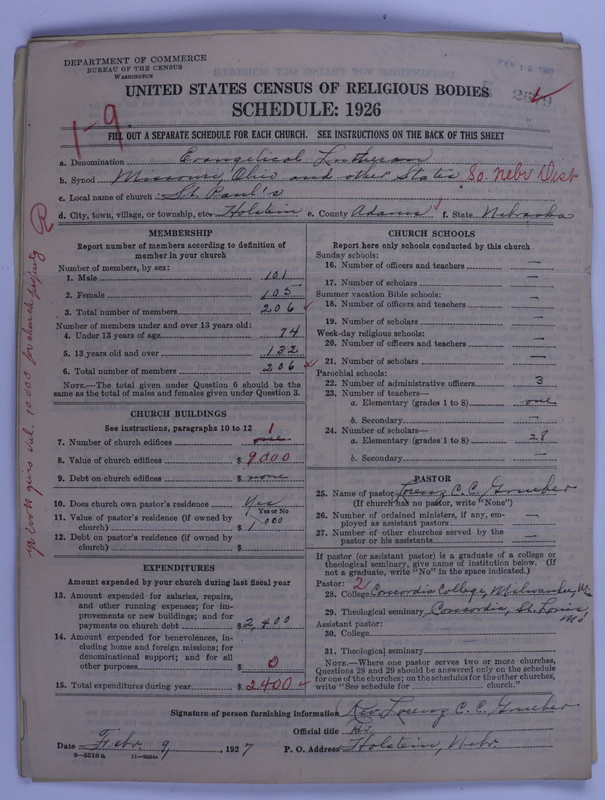 DEPARTMENT OF COMMERCE
BUREAU OF THE CENSUS
WASHINGTON
UNITED STATES CENSUS OF RELIGIOUS BODIES
SCHEDULE: 1926
1-9
FILL OUT A SEPARATE SCHEDULE FOR EACH CHURCH. SEE INSTRUCTIONS ON THE BACK OF THIS SHEET
a. Denomination Evangelical Lutheran
b. Synod Missouri, Ohio and other States So. Nebr Dist
c. Local name of church St. Paul's
d. City, town, village, or township, etc. Holstein e. County Adams f. State Nebraska
MEMBERSHIP
Report number of members according to definition of
member in your church
Number of members, by sex:
1. Male 101
2. Female 105
3. Total number of members 206
Number of members under and over 13 years old:
4. Under 13 years of age 74
5. 13 years old and over 132
6. Total number of members 206
NOTE.—The total given under Question 6 should be
same as the total of males and females given under Question 3.
CHURCH BUILDINGS
See instructions, paragraphs 10 to 12
7. Number of church edifices one 1
8. Value of church edifices $ 9000
9. Debt on church edifices $ none
10. Does church own pastor's residence Yes
Yes or No
11. Value of pastor's residence (if owned by
church) $ 1000
12. Debt on pastor's residence (if owned by
church) $
EXPENDITURES
Amount expended by your church during last fiscal year
13. Amount expended for salaries, repairs,
and other running expenses; for im-
provements or new buildings; and for
payments on church debt $ 2,400
14. Amount expended for benevolences, in-
cluding home and foreign missions; for
denominational support; and for all
other purposes $ 0
15. Total expenditures during year $ 2400
CHURCH SCHOOLS
Report here only schools conducted by this church
Sunday schools:
16. Number of officers and teachers —
17. Number of scholars —
Summer vacation Bible schools:
18. Number of officers and teachers —
19. Number of scholars —
Week-day religious schools:
20. Number of officers and teachers —
21. Number of scholars —
Parochial schools:
22. Number of administrative officers 3
23. Number of teachers—
a. Elementary (grades 1 to 8) one
b. Secondary —
24. Number of scholars—
a. Elementary (grades 1 to 8) 28
b. Secondary —
PASTOR
25. Name of pastor Lorenz C. C. Grueber
(If church has no pastor, write "None")
26. Number of ordained ministers, if any, em-
ployed as assistant pastors —
27. Number of other churches served by the
pastor or his assistants —
If pastor (or assistant pastor) is a graduate of a college or
theological seminary, give name of institution below. (If
not a graduate, write "No" in the space indicated.)
Pastor: 2
28. College Concordia College, Milwaukee, Wis
29. Theological seminary Concordia, St. Louis, Mo
Assistant pastor:
30. College
31. Theological seminary
NOTE.—Where one pastor serves two or more churches,
Questions 28 and 29 should be answered only on the schedule
for one of the churches; on the schedules for the other churches,
write "See schedule for church."
Signature of person furnishing information Rev. Lorenz C. C. Grueber
Official title Rev.
Date Febr. 9, 1927 P. O. Address Holstein, Nebr.